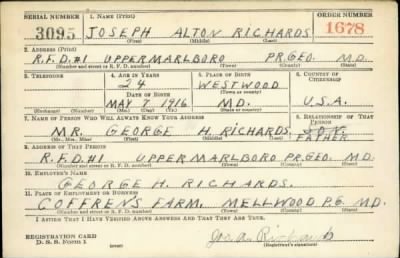 SERIAL NUMBER 1. NAME (Print) ORDER NUMBER
3095 JOSEPH ALTON RICHARDS 1678
(First) (Middle) (Last)
2. ADDRESS (Print)
R.F.D.#1 UPPER MARLBORO PR.GEO. M.D.
(Number and street or R. F. D. number) (Town) (County) (State)
3. TELEPHONE 4. AGE IN YEARS 5. PLACE OF BIRTH 6. COUNTRY OF CITIZENSHIP
24 WESTWOOD
DATE OF BIRTH (Town or county)
MAY 7, 1916 M.D. U.S.A.
(Exchange) (Number) (Mo.) (Day) (Yr.) (State or country)
7. NAME OF PERSON WHO WILL ALWAYS KNOW YOUR ADDRESS 8. RELATIONSHIP OF THAT PERSON
SON
MR. GEORGE H. RICHARDS. FATHER
(Mr., Mrs., Miss) (First) (Middle) (Last)
9. ADDRESS OF THAT PERSON
R.F.D.#1 UPPER MARLBORO PR.GEO. M.D.
(Number and street or R. F. D. number) (Town) (County) (State)
10. EMPLOYER'S NAME
GEORGE H. RICHARDS.
11. PLACE OF EMPLOYMENT OR BUSINESS
COFFREN'S FARM. MELLWOOD P.G. M.D.
(Number and street or R. F. D. number) (Town) (County) (State)
I AFFIRM THAT I HAVE VERIFIED ABOVE ANSWERS AND THAT THEY ARE TRUE.
REGISTRATION CARD
D. S. S. FORM 1 Jos. A. Richards
(Registrant's signature)